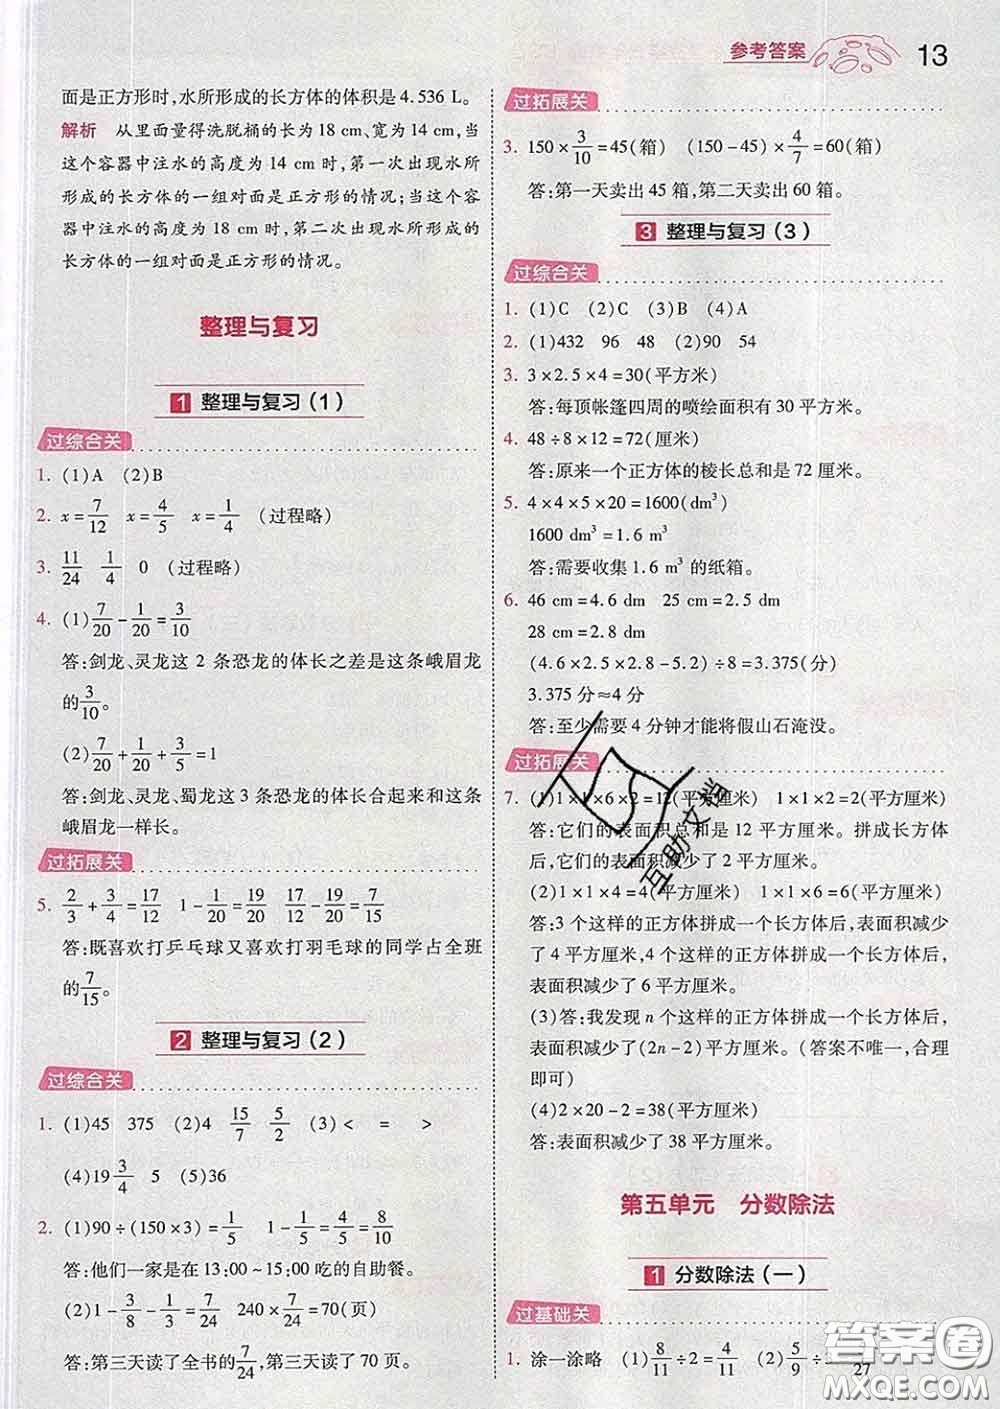 参考答案 13
面是正方形时,水所形成的长方体的体积是 4.536 L。
解析 从里面量得洗脱桶的长为 18 cm、宽为 14 cm,当
这个容器中注水的高度为 14 cm 时,第一次出现水所
形成的长方体的一组对面是正方形的情况;当这个容
器中注水的高度为 18 cm 时,第二次出现水所形成的
长方体的一组对面是正方形的情况。
整理与复习
1 整理与复习(1)
过综合关
1. (1)A (2)B
2. x=7/12 x=4/5 x=1/4 (过程略)
3. 11/24 1/4 0 (过程略)
4. (1)7/20-1/20=3/10
答:剑龙、灵龙这 2 条恐龙的体长之差是这条峨眉龙
的3/10。
(2)7/20+1/20+3/5=1
答:剑龙、灵龙、蜀龙这 3 条恐龙的体长合起来和这条
峨眉龙一样长。
过拓展关
5. 2/3+3/4=17/12 1-1/20=19/20 17/12-19/20=7/15
答:既喜欢打乒乓球又喜欢打羽毛球的同学占全班
的7/15。
2 整理与复习(2)
过综合关
1. (1)45 375 (2)4 15/7 5/2 (3)< = >
(4)19 3/4 5 (5)36
2. (1)90÷(150×3)=1/5 1-1/5=4/5=8/10
答:他们一家是在 13:00~15:00 吃的自助餐。
(2)1-3/8-1/3=7/24 240×7/24=70(页)
答:第三天读了全书的7/24,第三天读了 70 页。
过拓展关
3. 150×3/10=45(箱) (150-45)×4/7=60(箱)
答:第一天卖出 45 箱,第二天卖出 60 箱。
3 整理与复习(3)
过综合关
1. (1)C (2)C (3)B (4)A
2. (1)432 96 48 (2)90 54
3. 3×2.5×4=30(平方米)
答:每顶帐篷四周的喷绘面积有 30 平方米。
4. 48÷8×12=72(厘米)
答:原来一个正方体的棱长总和是 72 厘米。
5. 4×4×5×20=1600(dm³)
1600 dm³=1.6 m³
答:需要收集 1.6 m³ 的纸箱。
6. 46 cm=4.6 dm 25 cm=2.5 dm
28 cm=2.8 dm
(4.6×2.5×2.8-5.2)÷8=3.375(分)
3.375 分≈4 分
答:至少需要 4 分钟才能将假山石淹没。
过拓展关
7. (1)1×1×6×2=12(平方厘米) 1×1×2=2(平方厘米)
答:它们的表面积总和是 12 平方厘米。拼成长方体
后,它们的表面积减少了 2 平方厘米。
(2)1×1×4=4(平方厘米) 1×1×6=6(平方厘米)
答:3 个这样的正方体拼成一个长方体后,表面积减少
了 4 平方厘米,4 个这样的正方体拼成一个长方体后,
表面积减少了 6 平方厘米。
(3)答:我发现 n 个这样的正方体拼成一个长方体后,
表面积减少了(2n-2)平方厘米。(答案不唯一,合理
即可)
(4)2×20-2=38(平方厘米)
答:表面积减少了 38 平方厘米。
第五单元 分数除法
1 分数除法(一)
过基础关
1. 涂一涂略 (1)8/11÷2=4/11 (2)5/9÷
27
互助文档
答案圈
MXQE.COM